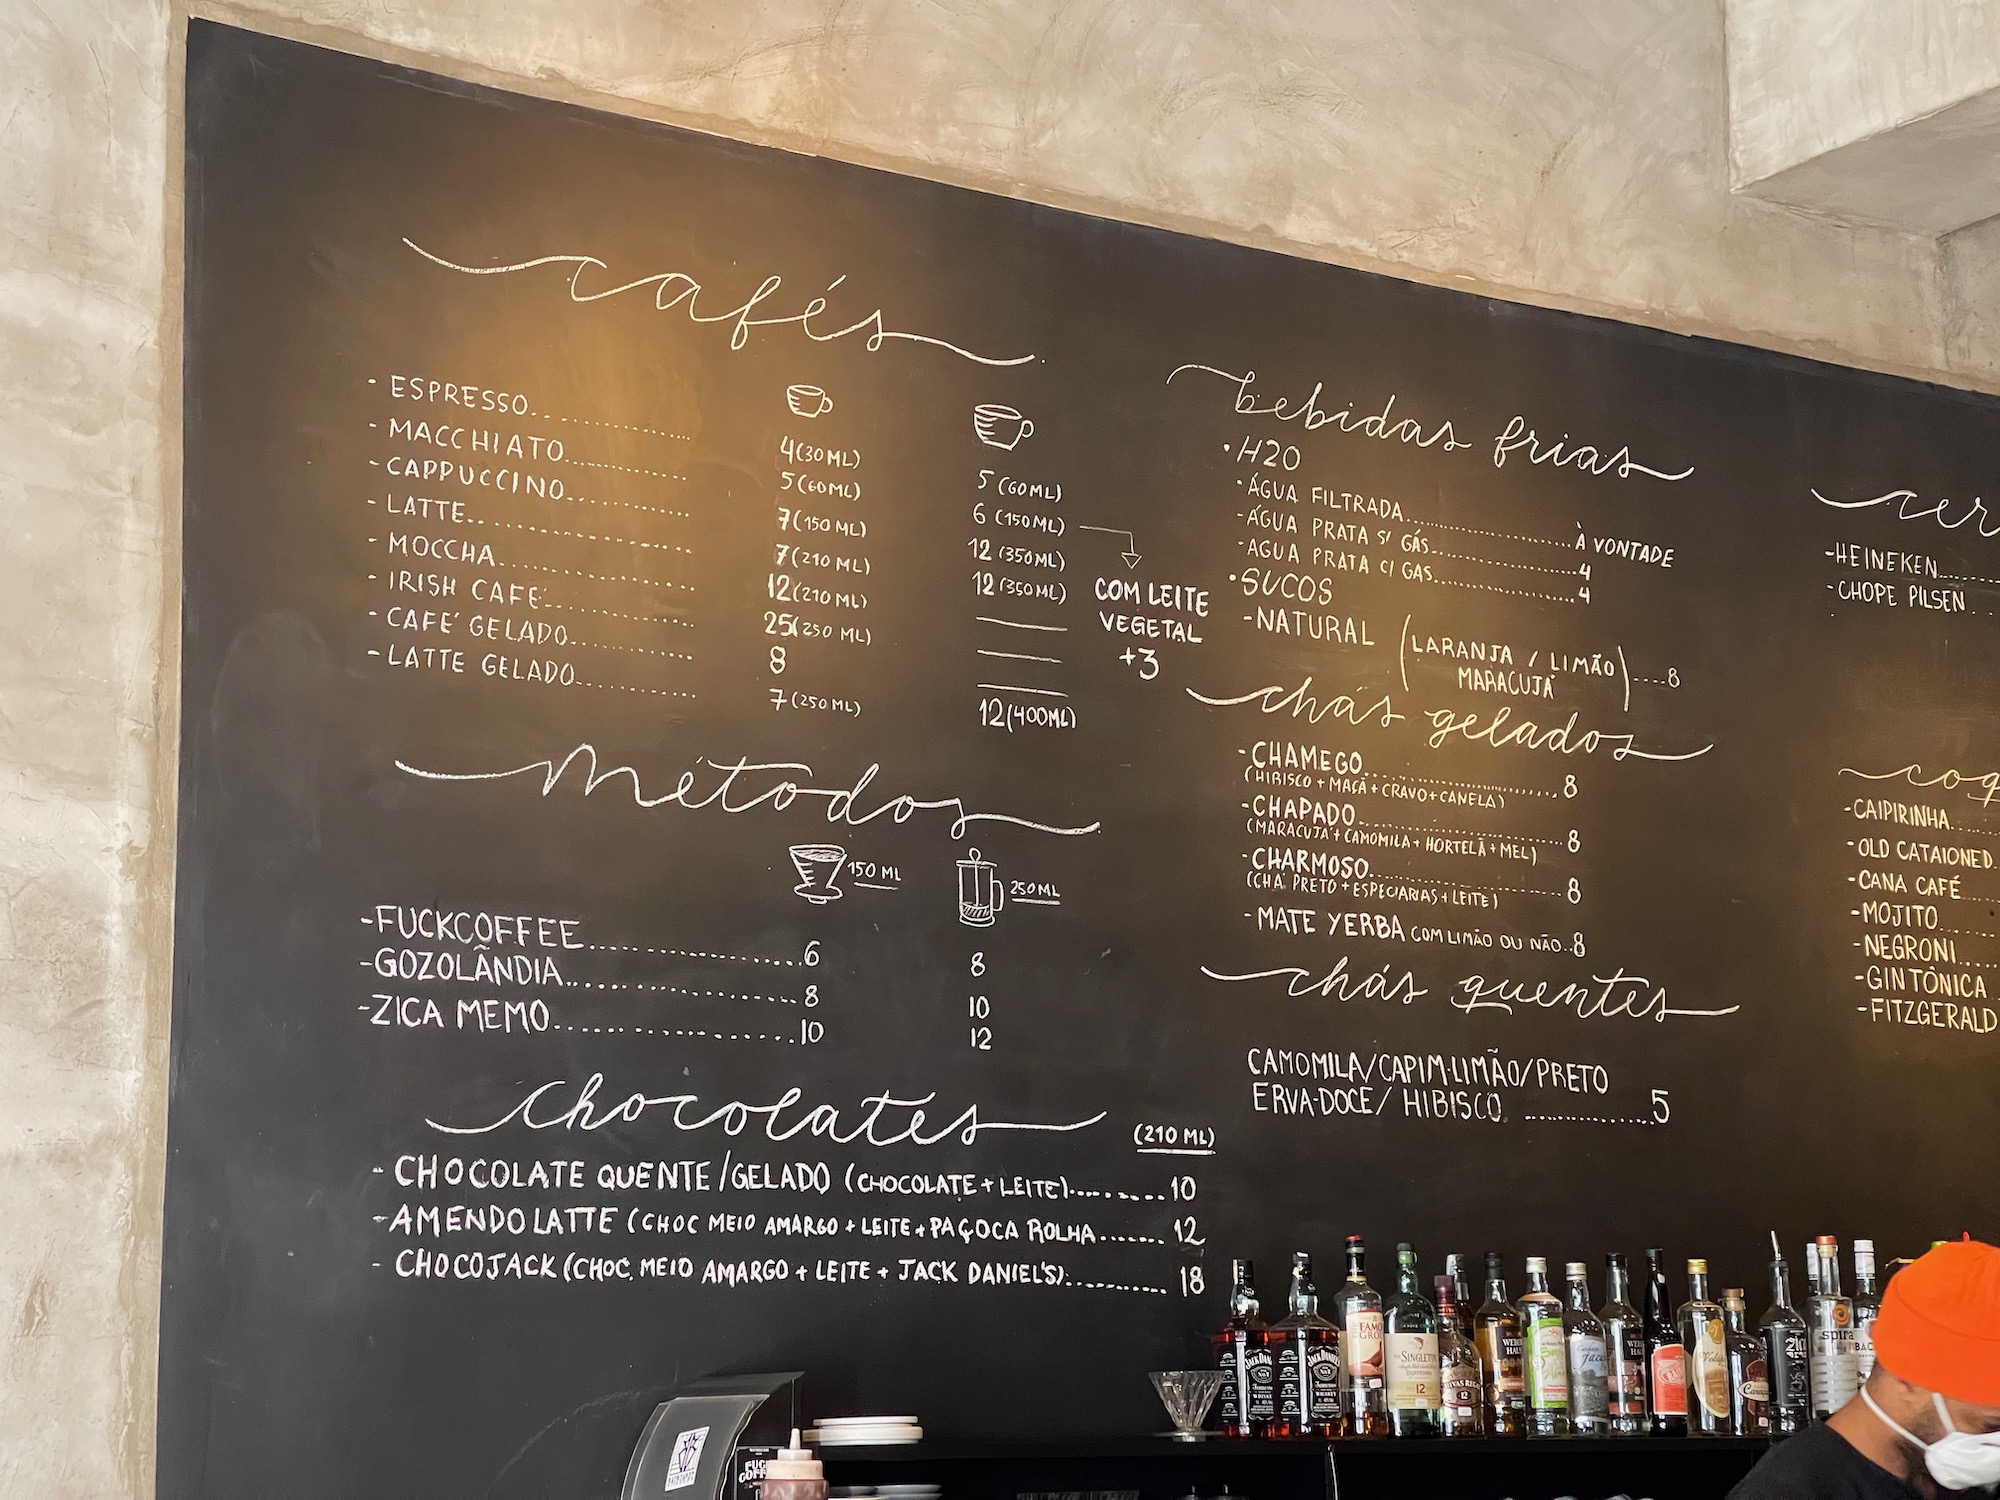 cafés
- ESPRESSO 4 (30 ML) 5 (60 ML)
- MACCHIATO 5 (60 ML) 6 (150 ML)
- CAPPUCCINO 7 (150 ML) 12 (350 ML)
- LATTE 7 (210 ML) 12 (350 ML)
- MOCCHA 12 (210 ML)
- IRISH CAFÉ 25 (250 ML)
- CAFÉ GELADO 8
- LATTE GELADO 7 (250 ML) 12 (400ML)
COM LEITE
VEGETAL
+3
métodos
150 ML 250 ML
- FUCKCOFFEE 6 8
- GOZOLÂNDIA 8 10
- ZICA MEMO 10 12
chocolates
(210 ML)
- CHOCOLATE QUENTE/GELADO (CHOCOLATE + LEITE) 10
- AMENDOLATTE (CHOC MEIO AMARGO + LEITE + PAÇOCA ROLHA 12
- CHOCOJACK (CHOC. MEIO AMARGO + LEITE + JACK DANIEL'S) 18
bebidas frias
• H2O
• ÁGUA FILTRADA À VONTADE
- ÁGUA PRATA S/ GÁS 4
- AGUA PRATA C/ GAS 4
• SUCOS
- NATURAL (LARANJA / LIMÃO
MARACUJÁ) 8
chás gelados
- CHAMEGO 8
(HIBISCO + MAÇÃ + CRAVO + CANELA)
- CHAPADO 8
(MARACUJÁ + CAMOMILA + HORTELÃ + MEL)
- CHARMOSO 8
(CHÁ PRETO + ESPECIARIAS + LEITE)
- MATE YERBA COM LIMÃO OU NÃO 8
chás quentes
CAMOMILA/CAPIM-LIMÃO/PRETO
ERVA-DOCE/HIBISCO 5
cer
- HEINEKEN
- CHOPE PILSEN
coq
- CAIPIRINHA
- OLD CATAIONED
- CANA CAFÉ
- MOJITO
- NEGRONI
- GIN TÔNICA
- FITZGERALD
JACK DANIEL'S
JACK DANIEL'S
SINGLETON
12
spira